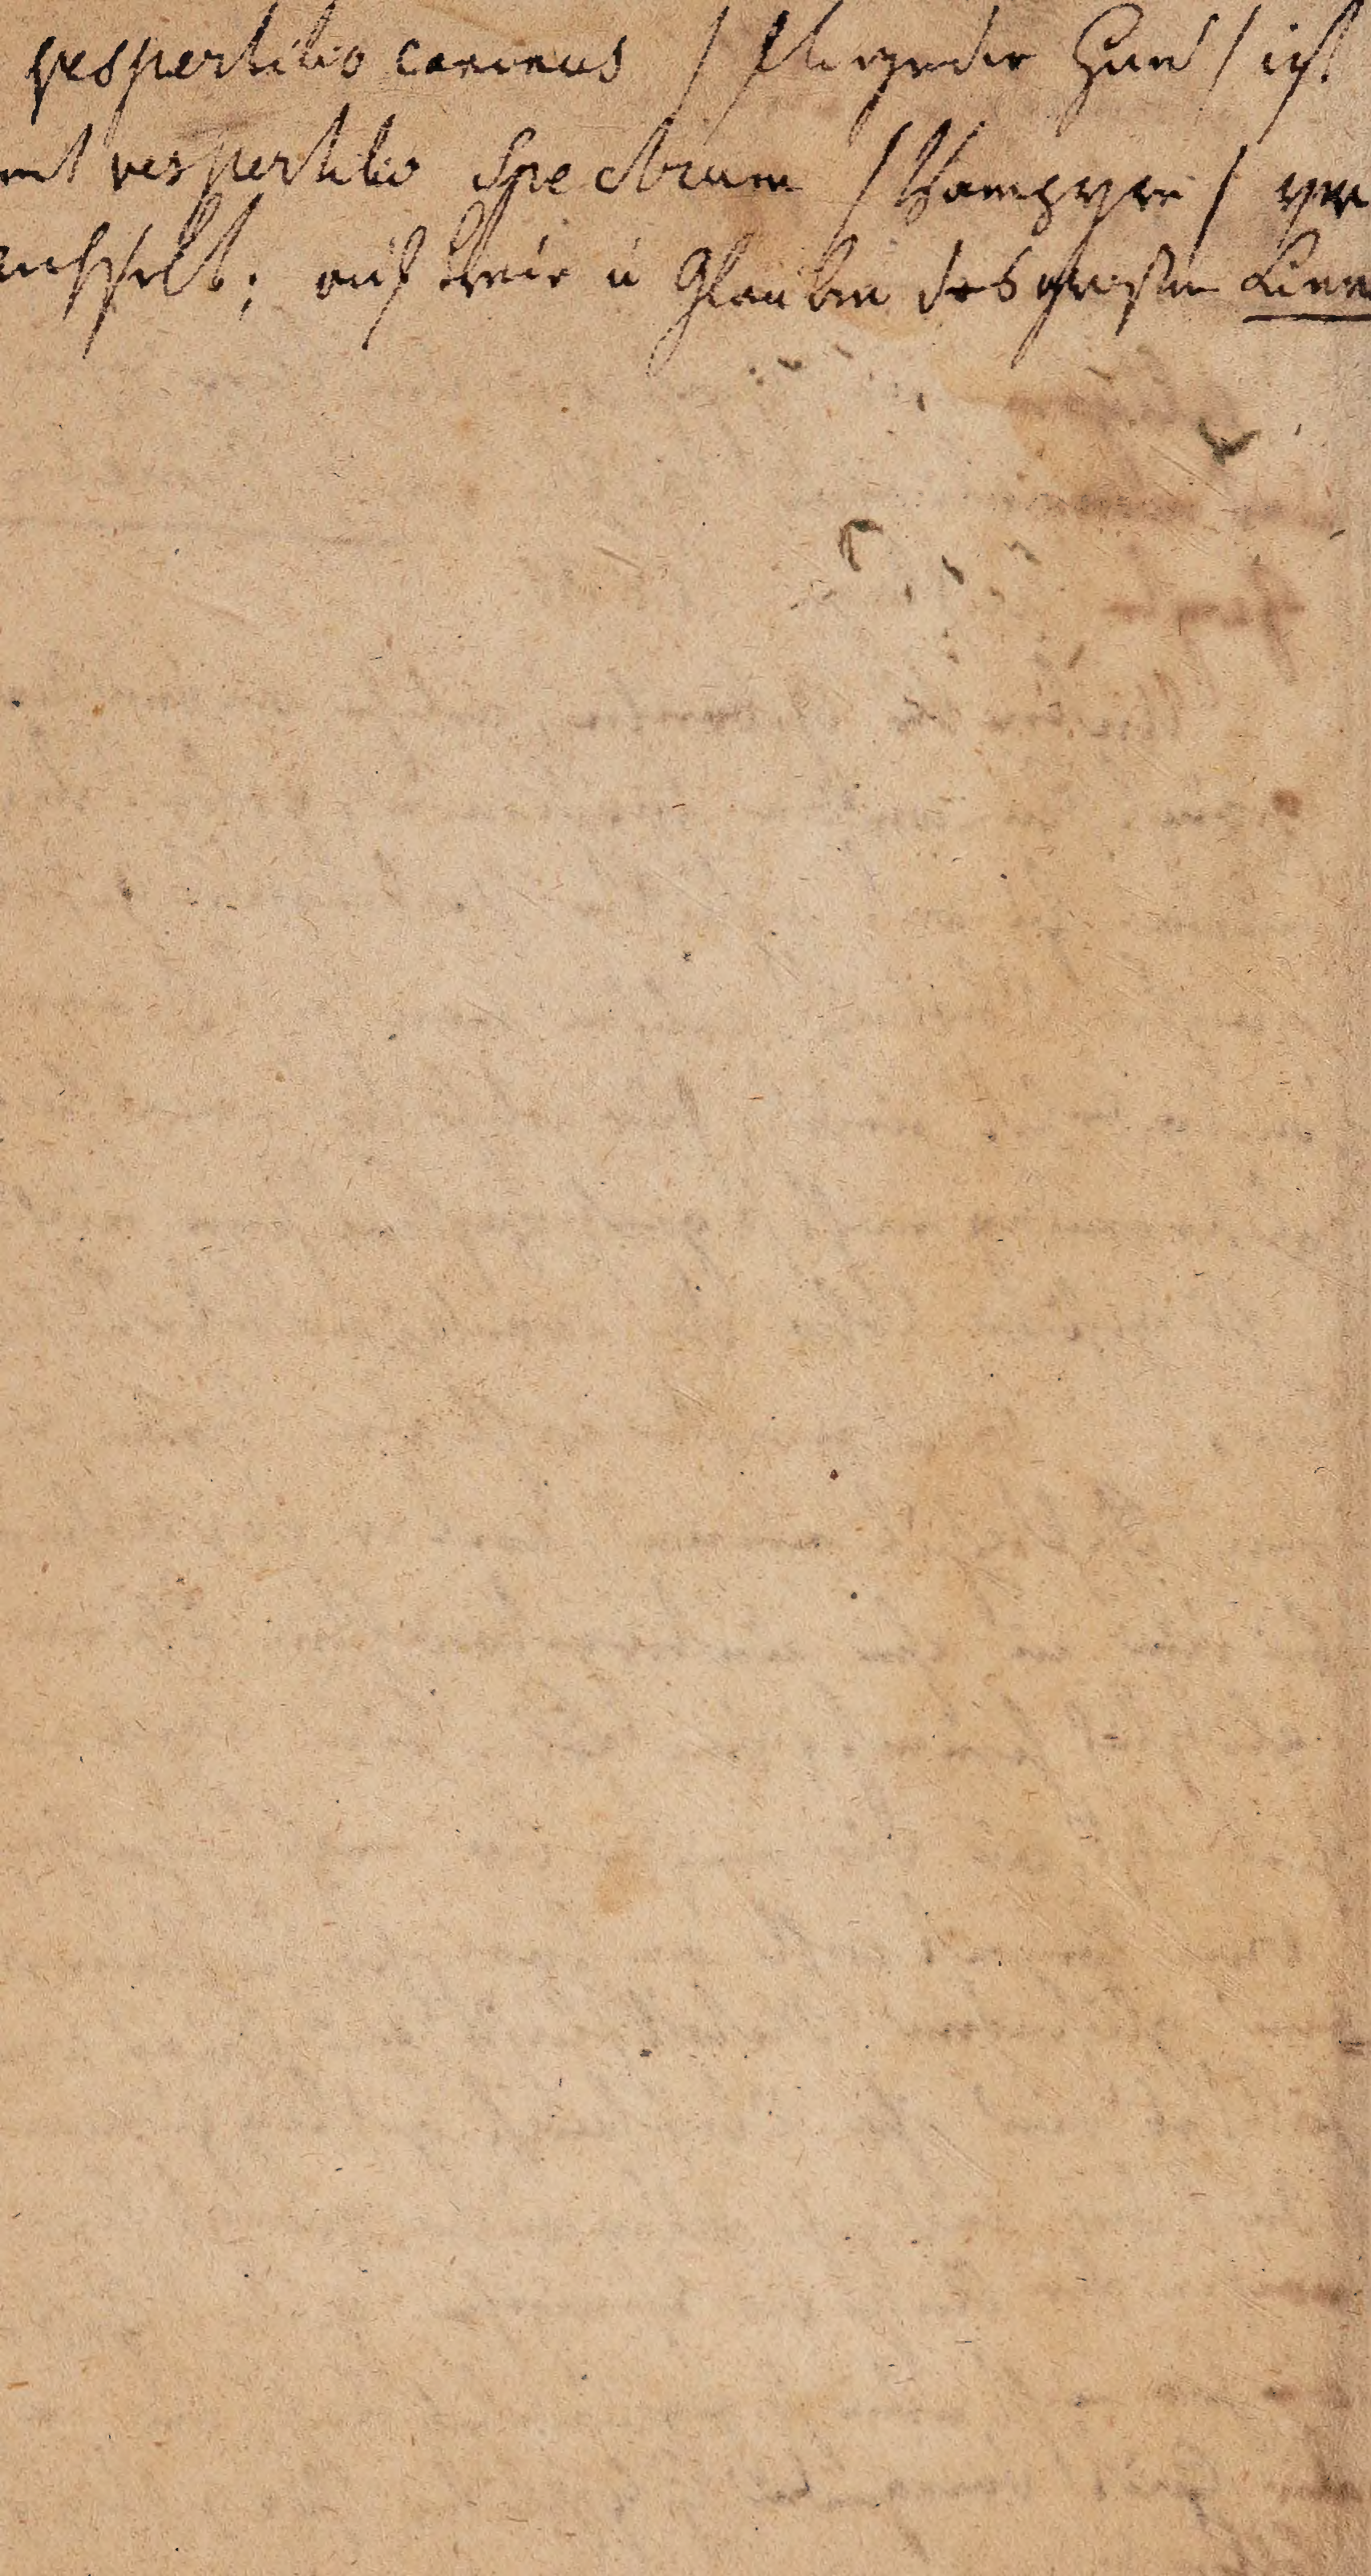 vespertilio caninus / fliegender Hund / ist
mit vespertilio Spectrum / Vampyre / ver
auf Treu u Glauben des großen Linn